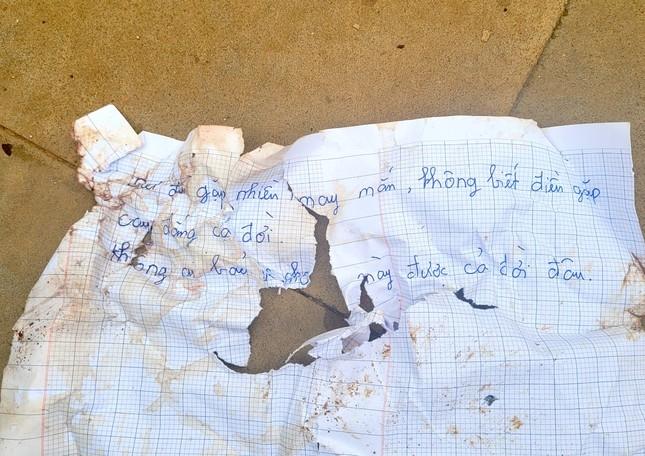 đã gặp nhiều may mắn, không biết điền gặp
cay đắng cả đời.
Không ai bảo vệ cho mày được cả đời đâu.